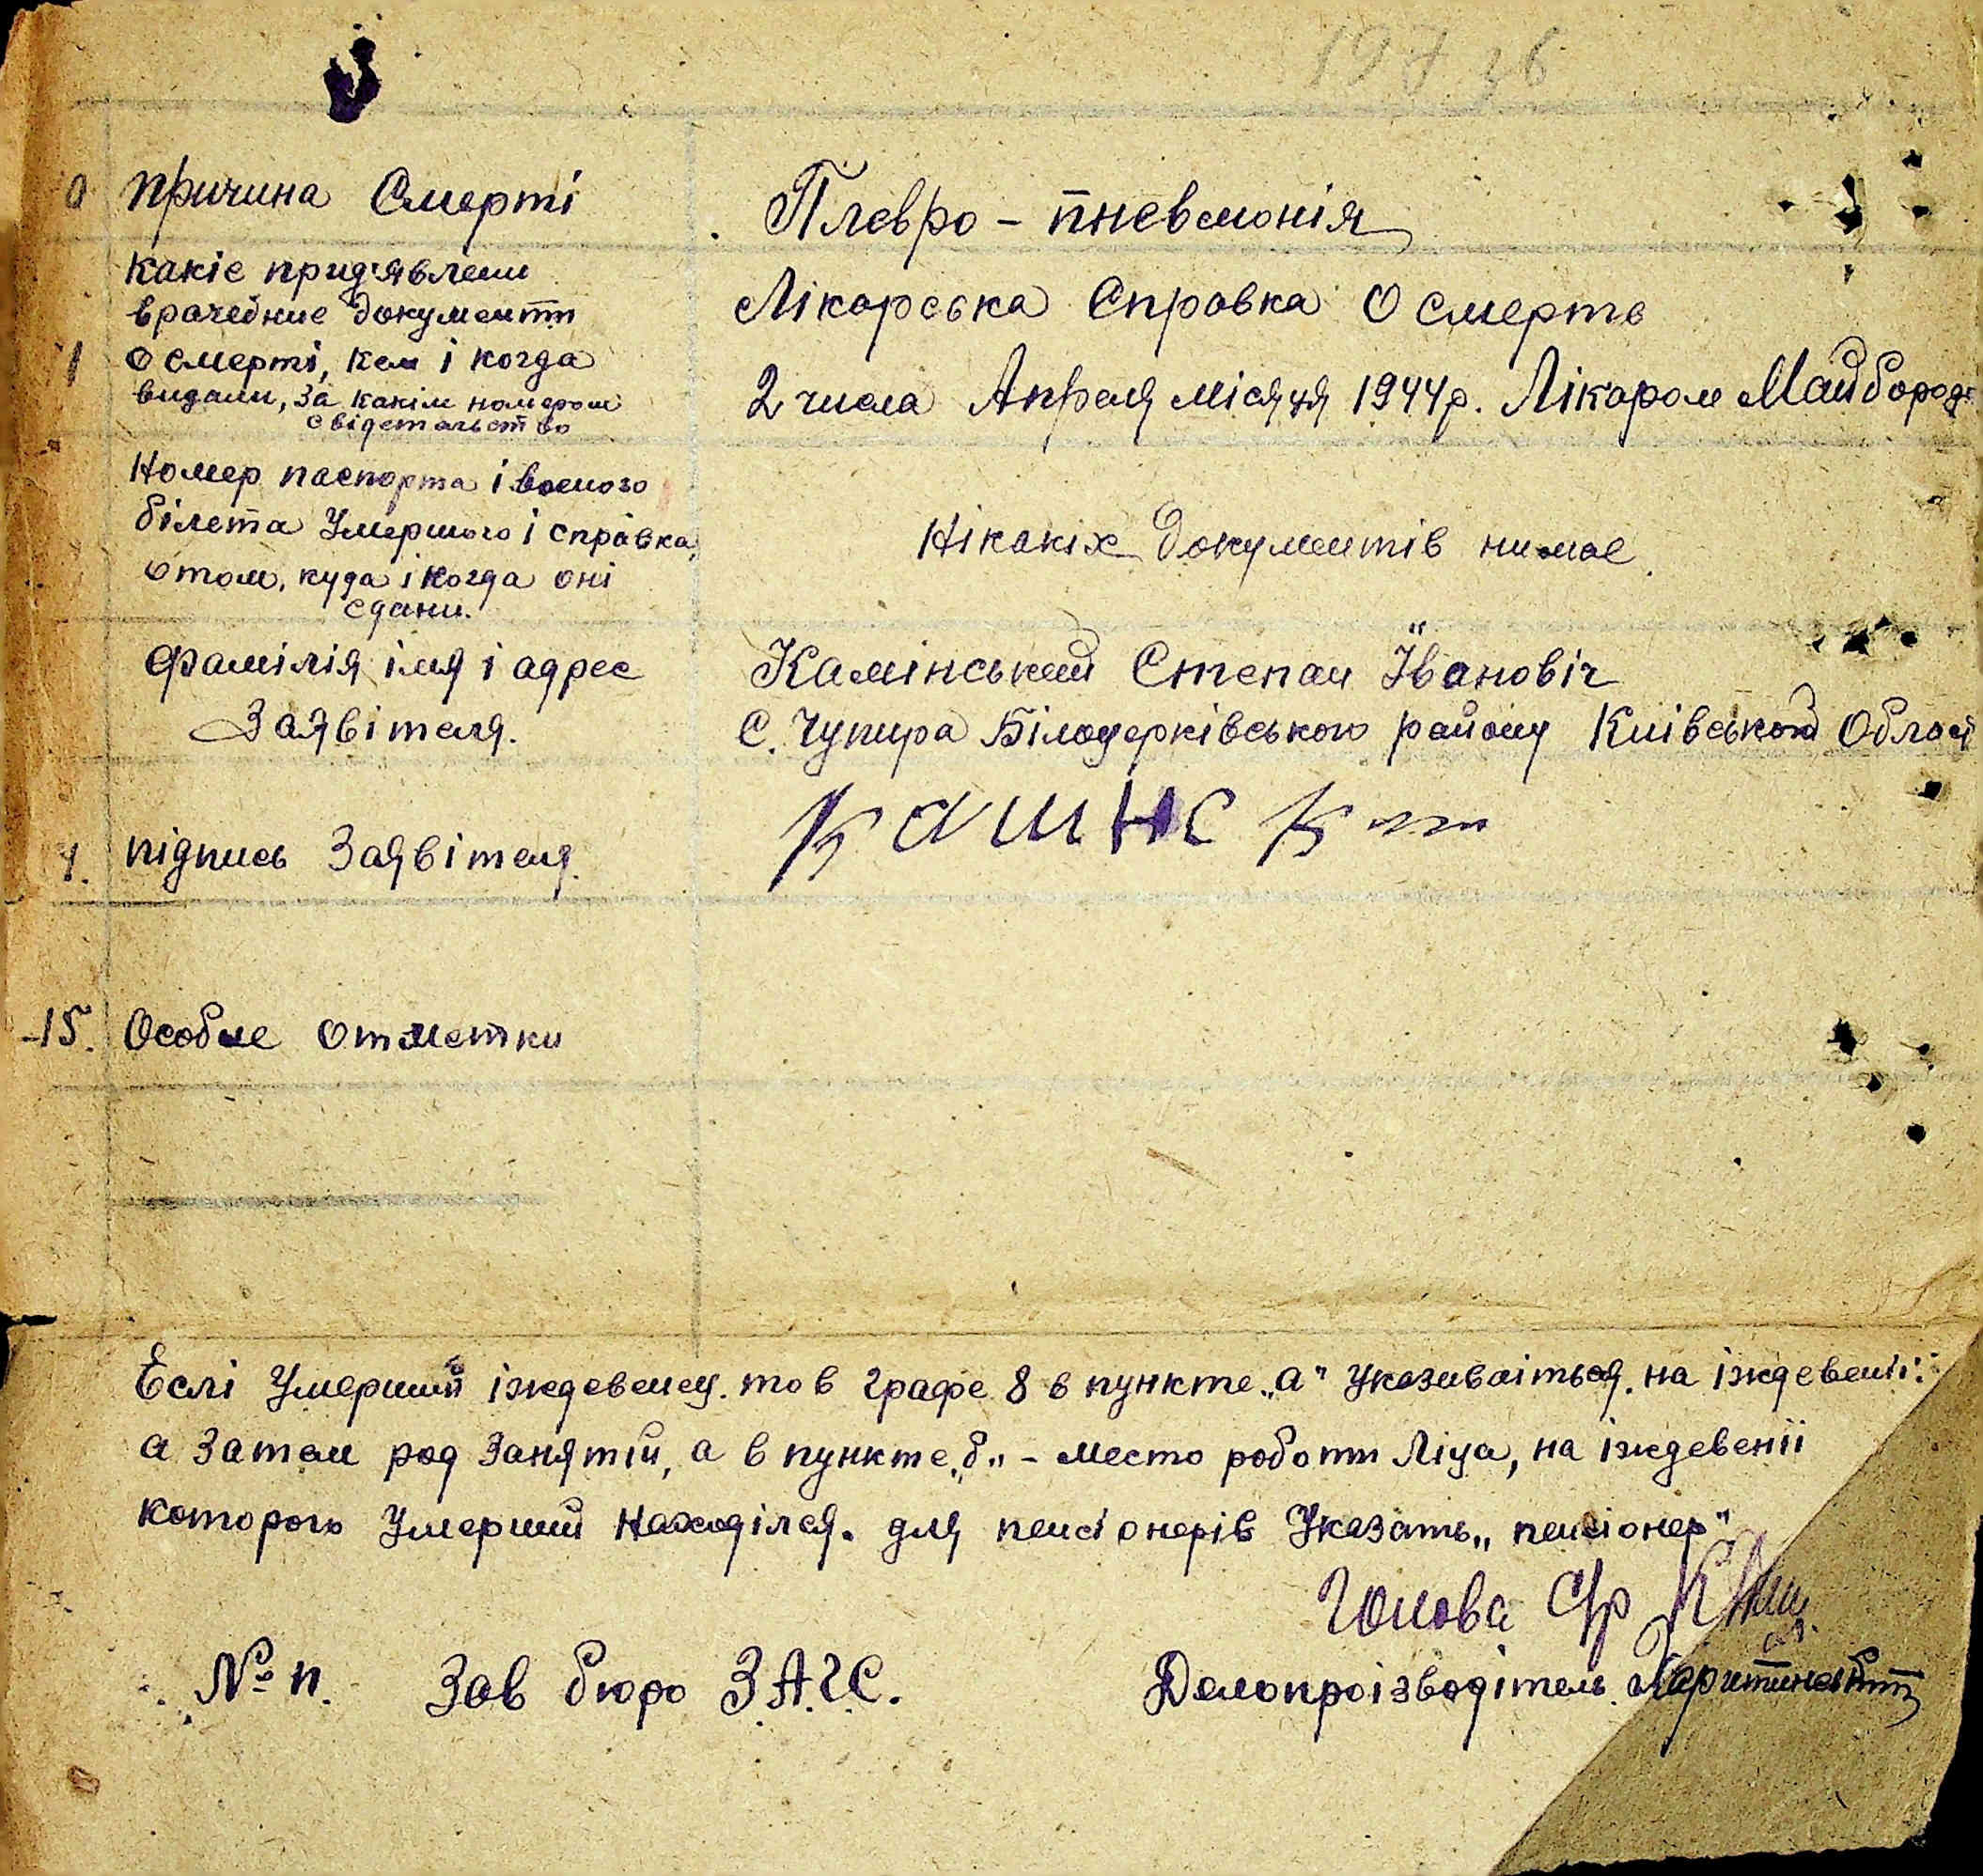 197 36
0 причина Смерті
Плевро - пневмонія
какіе придявлени
врачебние документи
1 о смерті, кем і когда
видани, за какім номером
свідетельство
Лікарська Справка О смерть
2 числа Апреля місяця 1944 р. Лікаром Майбород
Номер паспорта і военого
білета Умершого і справка,
о том, куда і когда оні
сдани.
Нікакіх документів нимае.
Фамілія імя і адрес
Заявітеля.
Камінський Степан Івановіч
С. Чупира Білоцерківського району Київськой Облас
4. підпись Заявітеля.
Камінск
15. Особие отметки
Еслі Умерший іждевенец. то в графе 8 в пункте „а" Указиваіться. на іждевеніі:
а Затем род Занятій, а в пункте „б" - место роботи Ліца, на іждевеніі
которого Умерший Находілся. для пенсіонерів Указать „ пенсіонер"
Голова С/р
№ п. Зав бюро З.А.Г.С.
Делопроізводітель.